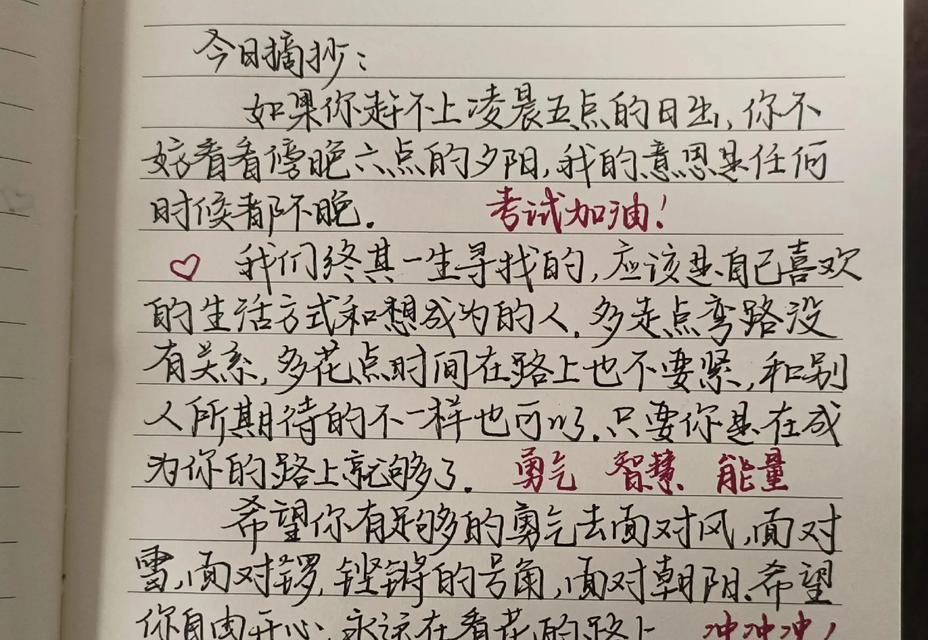 今日摘抄：
如果你赶不上凌晨五点的日出，你不
妨看看傍晚六点的夕阳，我的意思是任何
时候都不晚。 考试加油！
我们终其一生寻找的，应该是自己喜欢
的生活方式和想成为的人。多走点弯路没
有关系，多花点时间在路上也不要紧，和别
人所期待的不一样也可以。只要你是在成
为你的路上就够了。 勇气 智慧 能量
希望你有足够多的勇气去面对风，面对
雪，面对锣，铿锵的号角，面对朝阳。希望
你自由开心，永远在看花的路上 冲冲冲！